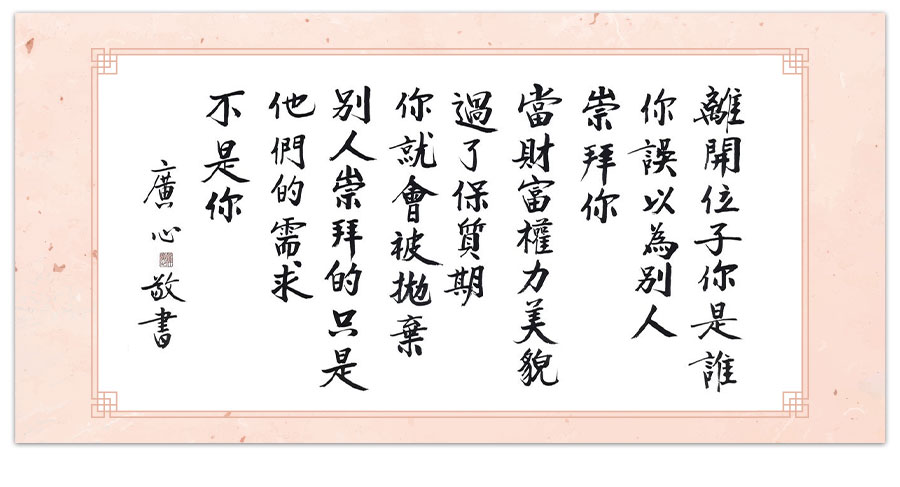 離開位子你是誰
你誤以為別人
崇拜你
當財富權力美貌
過了保質期
你就會被拋棄
別人崇拜的只是
他們的需求
不是你
廣心敬書